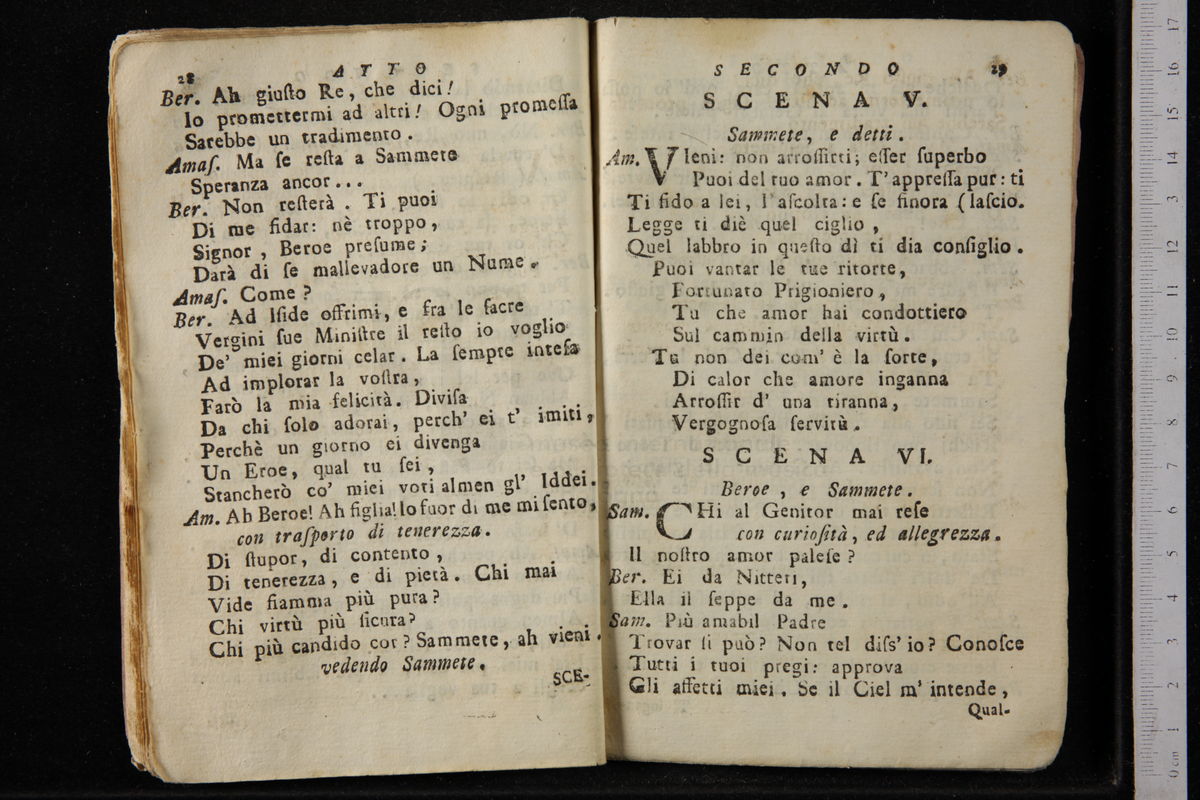 28 ATTO
Ber. Ah giuſto Re, che dici!
Io promettermi ad altri! Ogni promeſſa
Sarebbe un tradimento.
Amaſ. Ma ſe reſta a Sammete
Speranza ancor...
Ber. Non reſterà. Ti puoi
Di me fidar: nè troppo,
Signor, Beroe preſume;
Darà di ſe mallevadore un Nume.
Amaſ. Come?
Ber. Ad Iſide offrirmi, e fra le ſacre
Vergini ſue Miniſtre il reſto io voglio
De' miei giorni celar. La ſempre inteſa
Ad implorar la voſtra,
Farò la mia felicità. Diviſa
Da chi ſolo adorai, perch' ei t' imiti,
Perchè un giorno ei divenga
Un Eroe, qual tu ſei,
Stancherò co' miei voti almen gl' Iddei.
Am. Ah Beroe! Ah figlia! Io fuor di me mi ſento,
con traſporto di tenerezza.
Di ſtupor, di contento,
Di tenerezza, e di pietà. Chi mai
Vide fiamma più pura?
Chi virtù più ſicura?
Chi più candido cor? Sammete, ah vieni.
vedendo Sammete.
SCE-
SECONDO 29
SCENA V.
Sammete, e detti.
Am. VIeni: non arroſſirti; eſſer ſuperbo
Puoi del tuo amor. T' appreſſa pur: ti
Ti fido a lei, l' aſcolta: e ſe finora (laſcio.
Legge ti diè quel ciglio,
Quel labbro in queſto dì ti dia conſiglio.
Puoi vantar le tue ritorte,
Fortunato Prigioniero,
Tu che amor hai condottiero
Sul cammin della virtù.
Tu non dei com' è la ſorte,
Di calor che amore inganna
Arroſſir d' una tiranna,
Vergognoſa ſervitù.
SCENA VI.
Beroe, e Sammete.
Sam. CHi al Genitor mai reſe
con curioſità, ed allegrezza.
Il noſtro amor paleſe?
Ber. Ei da Nitteti,
Ella il ſeppe da me.
Sam. Più amabil Padre
Trovar ſi può? Non tel diſs' io? Conoſce
Tutti i tuoi pregi: approva
Gli affetti miei. Se il Ciel m' intende,
Qual-